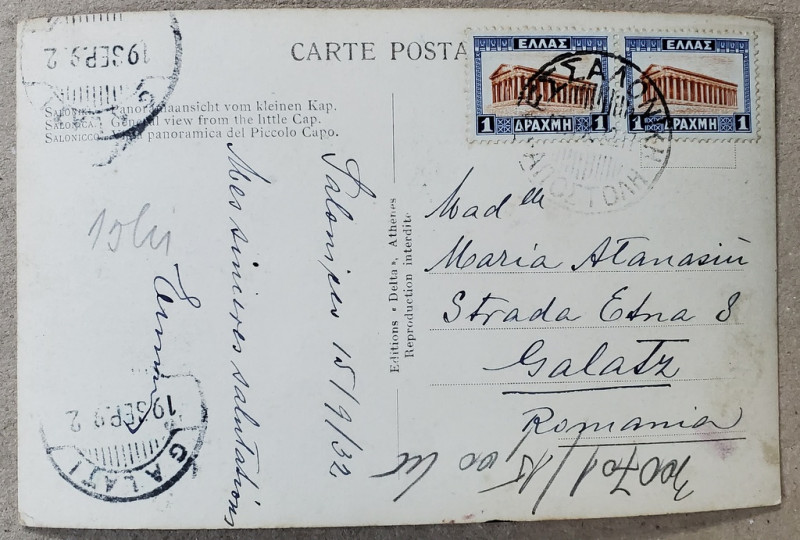 CARTE POSTA
SALONIQUE. Panoramaansicht vom kleinen Kap.
SALONICA. General view from the little Cap.
SALONICCO. panoramica del Piccolo Capo.
Salonique 15/9/32
Mes sinceres salutations
Editions « Delta », Athènes
Reproduction interdite
ΕΛΛΑΣ
1 ΔΡΑΧΜΗ 1
ΕΛΛΑΣ
1 ΔΡΑΧΜΗ 1
ΑΠΟΣΤΟΛΗ
Mad elle
Maria Atanasiu
Strada Etna 8
Galatz
Romania
19 SEP. 9 2
19 SEP. 9 2
GALATI